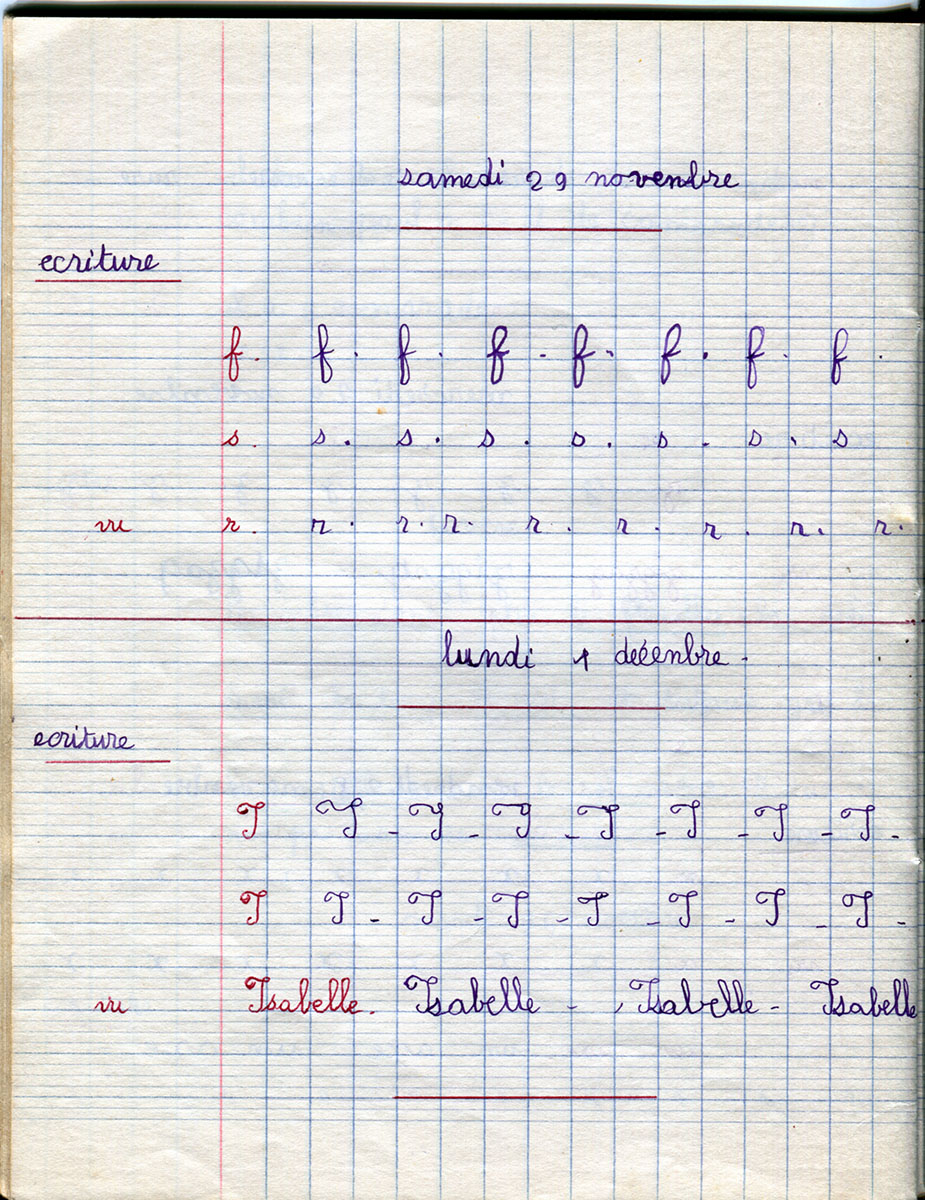 samedi 29 novenbre
ecriture
f. f. f. f. f. f. f. f.
s. s. s. s. s. s. s. s
vu r. r. r. r. r. r. r. r. r.
lundi 1 decenbre.
ecriture
I I - I - I - I - I - I - I -
I I - I - I - I - I - I - I -
vu Isabelle. Isabelle - Isabelle - Isabelle